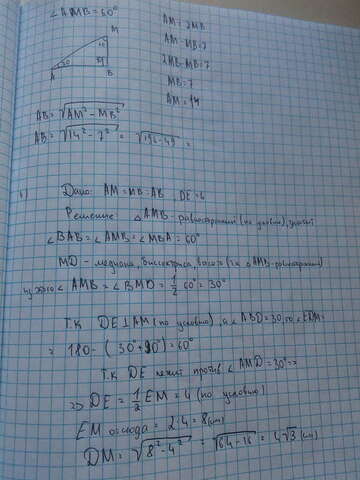 ∠AMB=60°
AM=2MB
AM-MB=7
2MB-MB=7
MB=7
AM=14
M
A
B
30
AB=√AM²-MB²
AB=√14²-7²=√196-49=
Дано: AM=MB=AB, DE=
Решение △AMB-равносторонний (по условию), значит
∠BAB=∠AMB=∠MBA=60°
MD - медиана, биссектриса, высота (т.к △AMB-равносторонний)
из этого ∠AMB=∠BMD=1/2 60°=30°
Т.К DE⊥AM (по условию), а ∠ABD=30, то ∠EDM=
=180-(30°+90°)=60°
Т.К DE лежит против ∠AMD=30°=>
=> DE=1/2 EM=4 (по условию)
EM отсюда = 2·4=8(см)
DM=√8²-4²=√64-16=4√3(см)